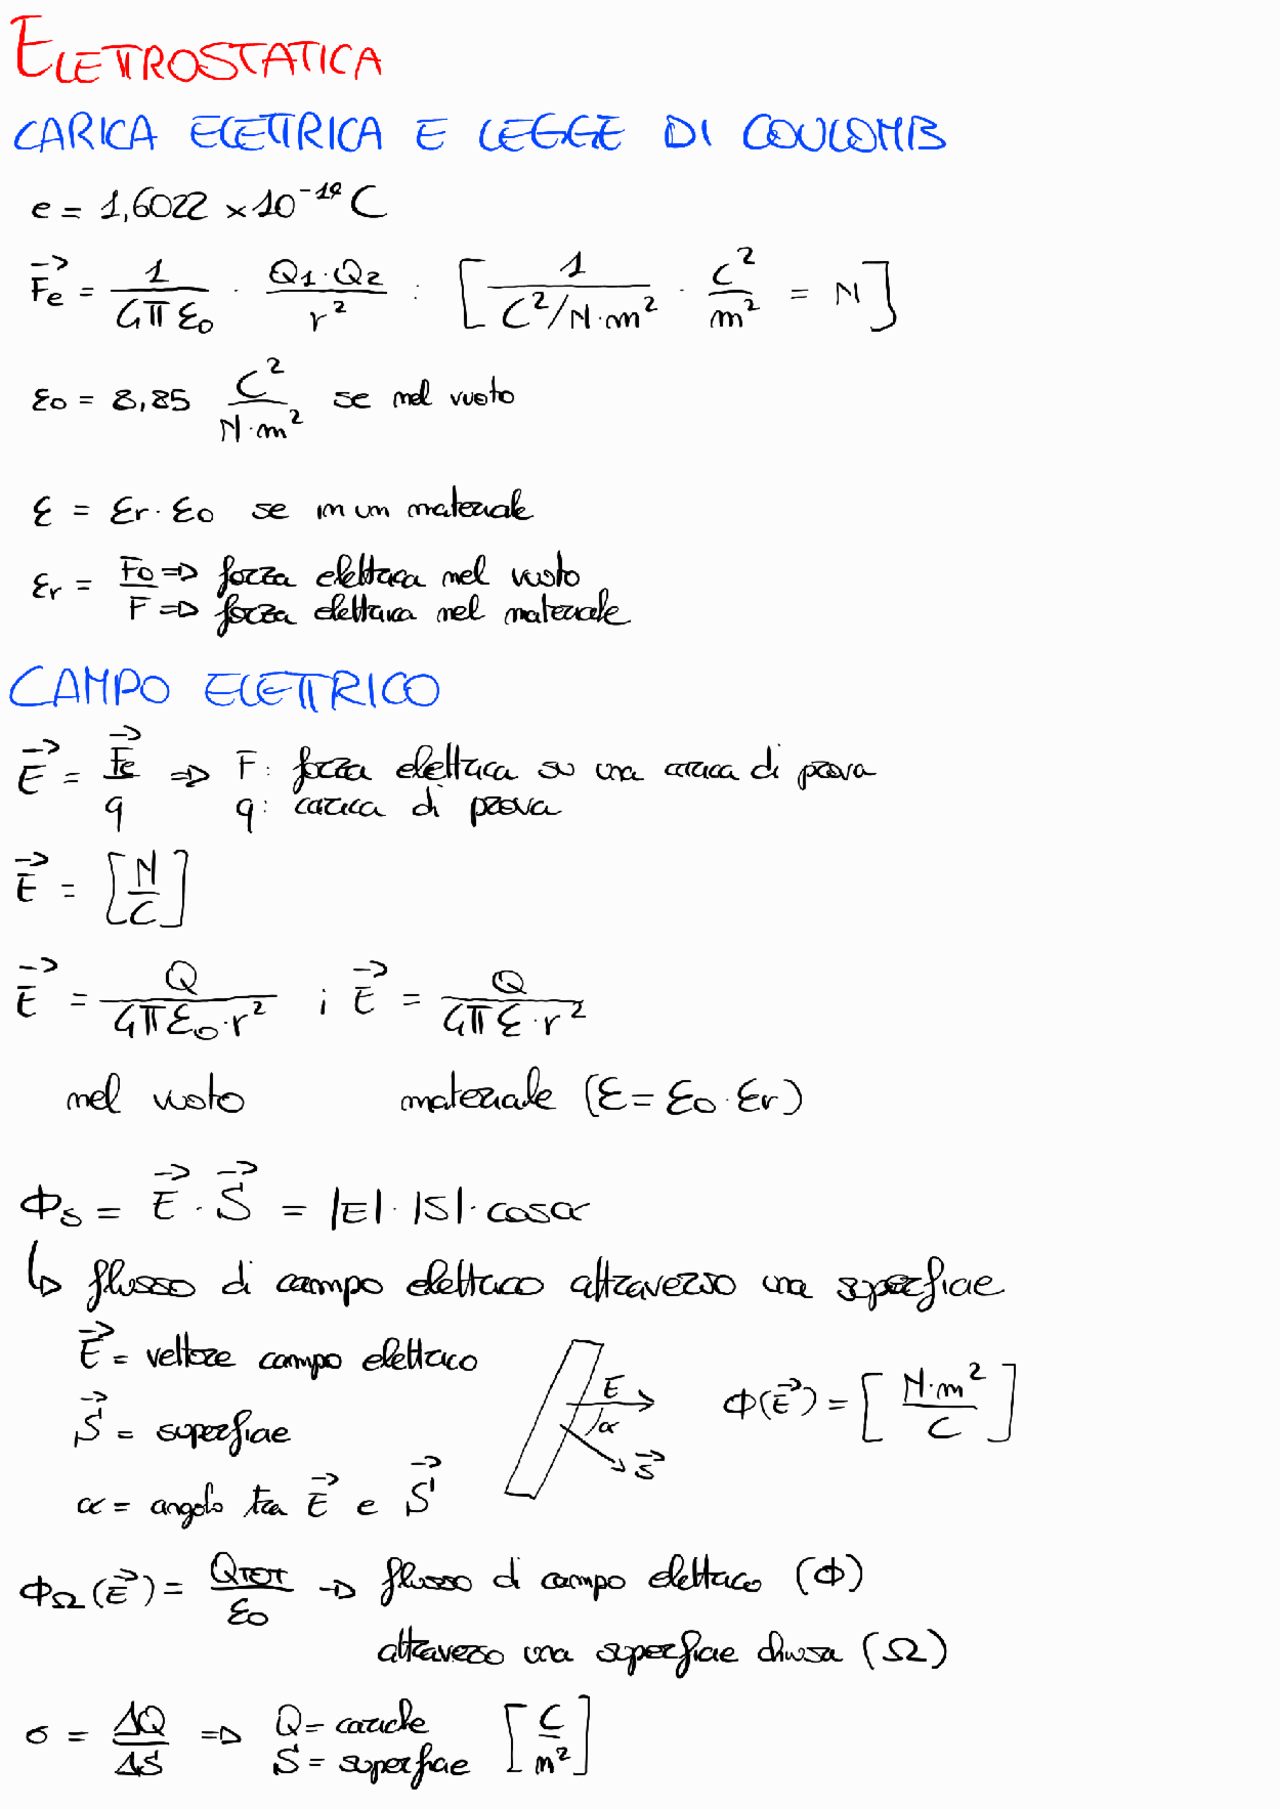 ELETTROSTATICA
CARICA ELETTRICA E LEGGE DI COULOMB
e = 1,6022 × 10⁻¹⁹ C
F⃗e = 1/(4π ε0) · (Q1·Q2)/r² : [1/(C²/N·m²) · C²/m² = N]
ε0 = 8,85 C²/(N·m²) se nel vuoto
ε = εr · ε0 se in un materiale
εr = F0 => forza elettrica nel vuoto
F => forza elettrica nel materiale
CAMPO ELETTRICO
E⃗ = F⃗e/q => F: forza elettrica su una carica di prova
q: carica di prova
E⃗ = [N/C]
E⃗ = Q/(4π ε0 · r²) ; E⃗ = Q/(4π ε · r²)
nel vuoto materiale (ε = ε0 · εr)
Φs = E⃗ · S⃗ = |E| · |S| · cosα
↳ flusso di campo elettrico attraverso una superficie
E⃗ = vettore campo elettrico
S⃗ = superficie
α = angolo tra E⃗ e S⃗
E
α
S⃗
Φ(E⃗) = [N·m²/C]
ΦΩ(E⃗) = QTOT/ε0 → flusso di campo elettrico (Φ)
attraverso una superficie chiusa (Ω)
σ = ΔQ/ΔS => Q = cariche [C/m²]
S = superficie